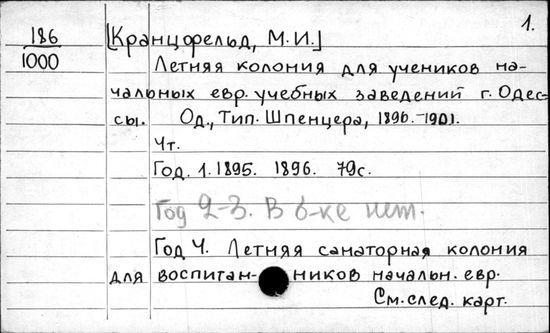 1.
186
1000
[Кранцфельд, М.И.]
Летняя колония для учеников на-
чальных евр. учебных заведений г. Одес-
сы. Од., Тип. Шпенцера, 1896.-1901.
Чт.
Год. 1. 1895. 1896. 79с.
Год 2-3. В б-ке нет.
Год 4. Летняя санаторная колония
для воспитан- ников начальн. евр.
См. след. карт.